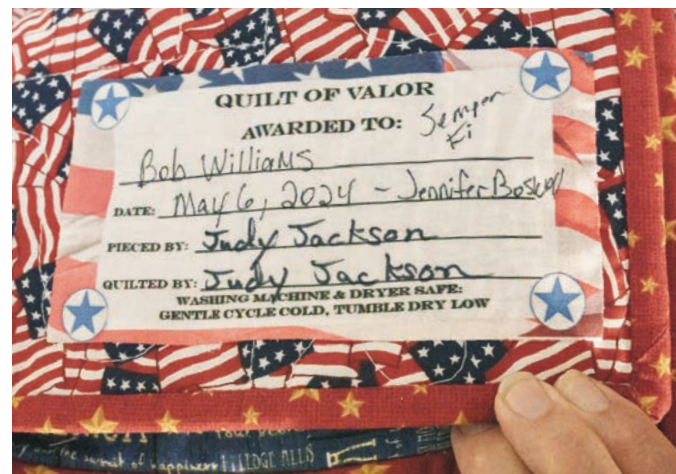 QUILT OF VALOR
AWARDED TO: Semper
Fi
Bob Williams
DATE: May 6, 2024 - Jennifer Boswell
PIECED BY: Judy Jackson
QUILTED BY: Judy Jackson
WASHING MACHINE & DRYER SAFE:
GENTLE CYCLE COLD, TUMBLE DRY LOW
of happiness